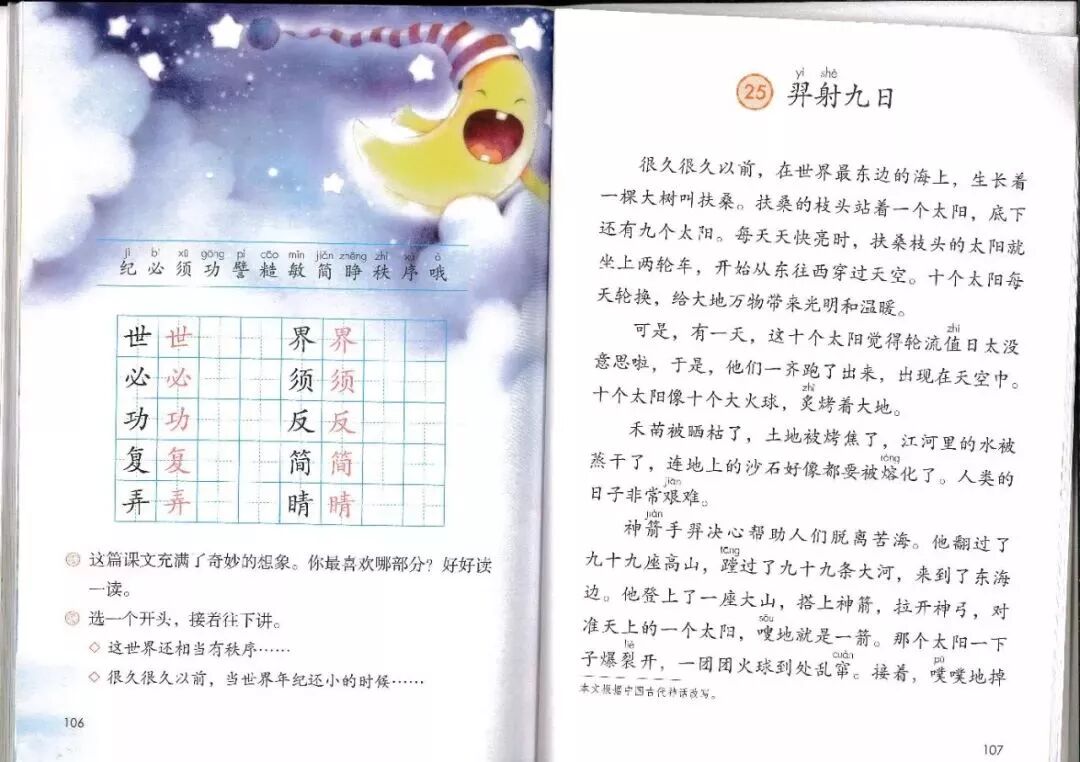 jì bì xū gōng pì cāo mǐn jiǎn zhēng zhì xù ò
纪必须功譬糙敏简睁秩序哦
世世 界界
必必 须须
功功 反反
复复 简简
弄弄 晴晴
这篇课文充满了奇妙的想象。你最喜欢哪部分？好好读
一读。
选一个开头，接着往下讲。
◇ 这世界还相当有秩序……
◇ 很久很久以前，当世界年纪还小的时候……
106
yì shè
25 羿射九日
很久很久以前，在世界最东边的海上，生长着
一棵大树叫扶桑。扶桑的枝头站着一个太阳，底下
还有九个太阳。每天天快亮时，扶桑枝头的太阳就
坐上两轮车，开始从东往西穿过天空。十个太阳每
天轮换，给大地万物带来光明和温暖。
zhí
可是，有一天，这十个太阳觉得轮流值日太没
意思啦，于是，他们一齐跑了出来，出现在天空中。
zhì
十个太阳像十个大火球，炙烤着大地。
禾苗被晒枯了，土地被烤焦了，江河里的水被
róng
蒸干了，连地上的沙石好像都要被熔化了。人类的
jiān
日子非常艰难。
jiàn
神箭手羿决心帮助人们脱离苦海。他翻过了
tāng
九十九座高山，蹚过了九十九条大河，来到了东海
边。他登上了一座大山，搭上神箭，拉开神弓，对
sōu
准天上的一个太阳，嗖地就是一箭。那个太阳一下
liè cuàn pū
子爆裂开，一团团火球到处乱窜。接着，噗噗地掉
本文根据中国古代神话改写。
107